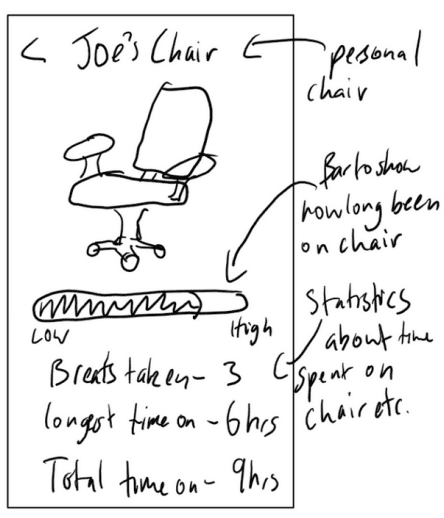 < Joe's Chair
personal
chair
Bar to show
how long been
on chair
Low
High
Statistics
about time
spent on
chair etc.
Breaks taken - 3
longest time on - 6hrs
Total time on - 9hrs